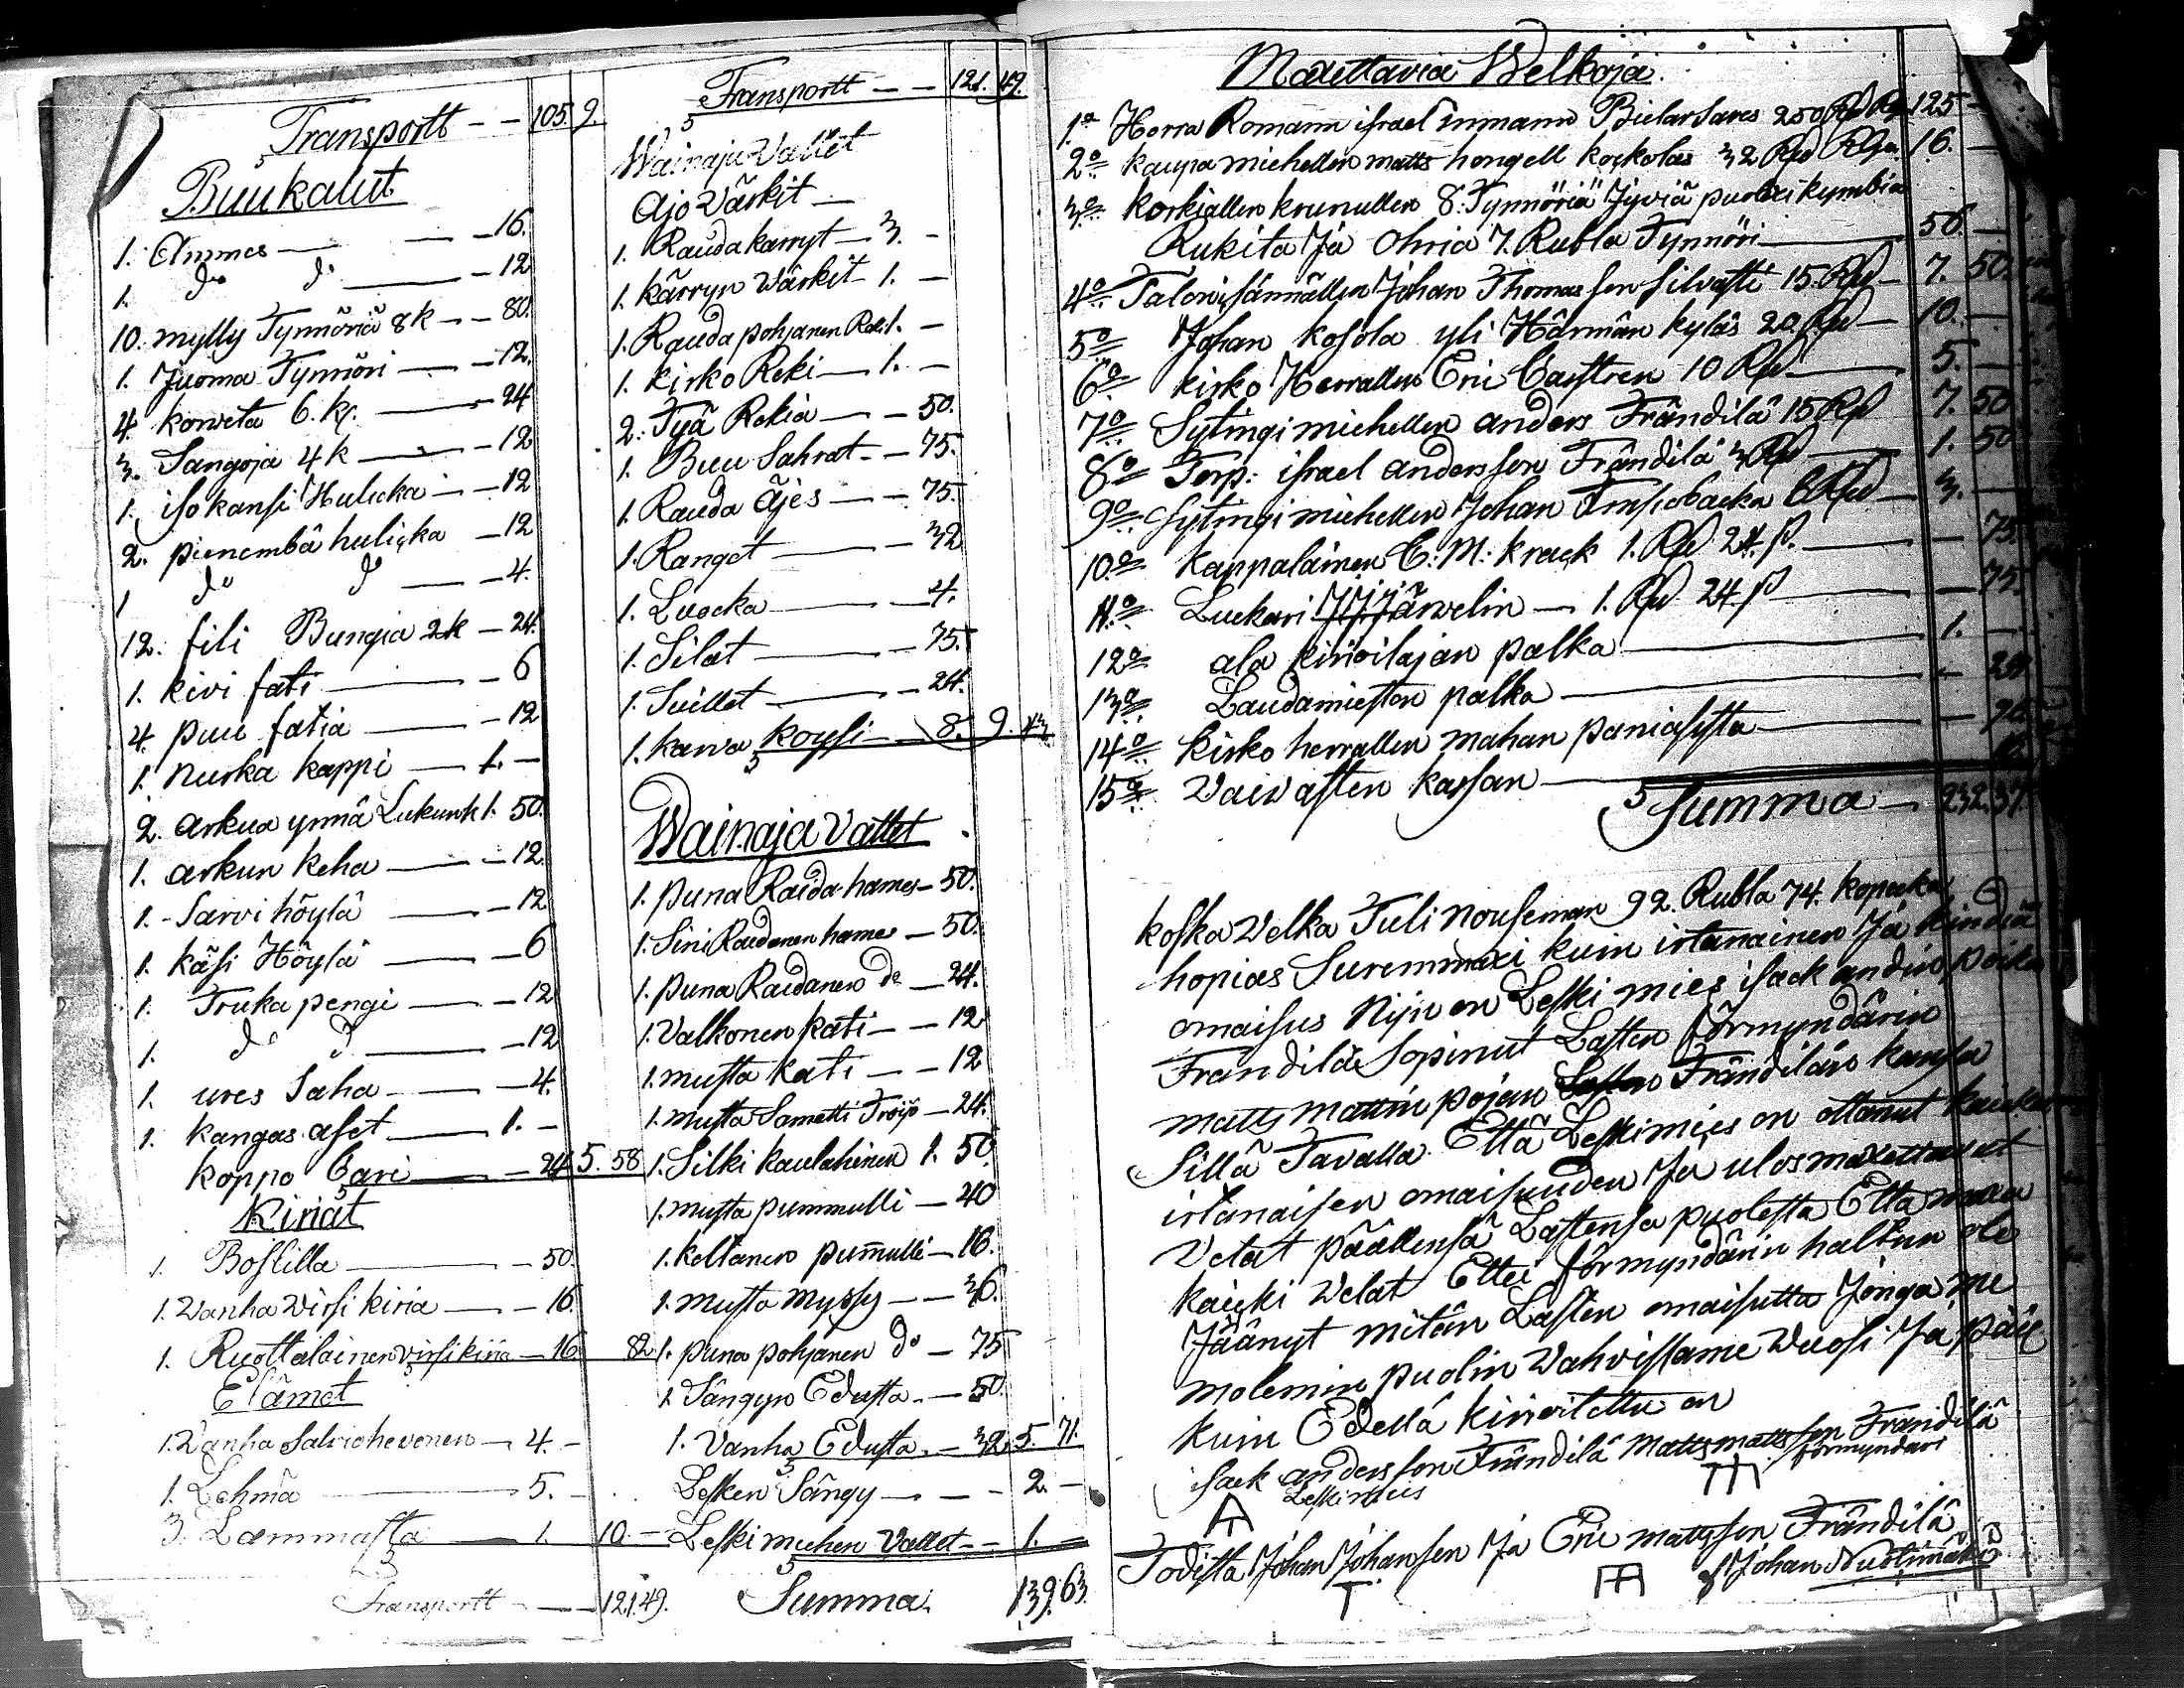 Transportt - - 105. 9.
Buukalut
1. Ammes - 16.
1. do do - 12
10. mylly Tynnöriä 8 k - - 80.
1. Juoma Tynnöri - 12.
4. korveta 6. k. - 24
3. Sangoja 4 k - 12
1. iso kansi Hulicka - 12
2. pienembä hulicka - 12
1 do do - 4.
12. fili Bungia 2k - 24.
1. kivi fati - 6
4. puu fatia - 12
1. Nurka kappi - 1. -
2. Arkua ynnä Lukunk 1. 50.
1. arkun keha - 12.
1. Sarvi höylä - 12
1. käsi Höylä - 6
1. Truka pengi - 12
1. do do - 12
1. ures Saha - 4.
1. kangas aset - 1. -
koppo Cari - 24 5. 58
Kiriat
1. Bostilla - 50.
1. Wanha Virsi kiria - 16.
1. Ruottalainen virsikiria - 16 82
Elämet
1. Wanha Salviohevonen - 4. -
1. Lehmä - 5. -
3. Lammasta - 1. 10. -
Transportt - 121. 49.
Transportt - - 121. 49.
Wainaju Vattet
Ajo Värkit -
1. Rauda karryt - 3. -
1. kärryn Wärkit - 1. -
1. Rauda pohjanen Reki 1. -
1. kirko Reki - 1. -
2. Tyä Rekia - 50.
1. Buu Sahrat - - 75.
1. Rauda Äjes - 75.
1. Ranget - 32
1. Luocka - 4.
1. Silat - 75.
1. Suillet - 24.
1. karva koysi - 8. 9. 43
Wainaja Vattet
1. puna Raida hames - 50.
1. Sini Raidanen hames - 50.
1. puna Raidanen do - 24.
1. Valkonen kati - - 12
1. musta kati - - 12
1. musta Sametti Tröijö - 24.
1. Silki kaulahinen 1. 50.
1. musta pummulli - 40
1. keltanen pumulli - 16.
1. musta myssy - - 36.
1. puna pohjanen do - 75
1. Sängyn Edusta - 50.
1. Vanha Edusta - 32 5. 71.
Lesken Sängy - - - 2. -
Leski miehen Vattet - - 1. -
Summa 139. 63.
Maxettavia Welkoja.
1o Herra Romann israel Inmann Bielarsares 250 Rd Rg 125 -
2o kaupa miehellen matts hongell kockolas 32 Rd Rg 16. -
3o korkiallen krunullen 8. Tynnöriä Jyviä puolexi kymbiä
Rukita Ja Ohria 7. Rubla Tynnöri - 56. -
4o Talonisännällen Johan Thomasson Silvasti 15. Rd - 7. 50.
5o Johan kosola yli Härmän kyläs 20. Rd - 10. -
6o kirko Herrallen Eric Castren 10 Rd - 5. -
7o Sytingi miehellen anders Frändilä 15 Rd 7. 50
8o Torp: israel andersson Frändilä 3 Rd - 1. 50
9o Sytingi miehellen Johan 6 Rd - 3. -
10o kappalainen C: M: krack 1. Rd 24. p. - 75.
11o Luckari Järvelin - 1. Rd 24. p - 75
12o ala kirioitajan palka - 1. -
13o Laudamiesten palka -
14o kirko herrallen mahan paniasista -
15o Vaivasten kassan -
Summa - 232. 37.
koska Velka Tuli nouseman 92. Rubla 74. kopecka
hopias Suremmaxi kuin irtanainen Ja kindiä
omaisus Nijn on Leski mies isack andin poika
Frändilä Sopinut Lasten förmyndärin
matts mattin pojan Frändilän kansa
Sillä Tavalla. Että Leskimies on ottanut kaicken
irtanaisen omaisuuden Ja ulosmaxettavat
Velat päällensä Lastensa puolesta Että maxa
kaicki Velat Ettei förmyndärin haltun ole
Jäänyt mitän Lasten omaisutta Jonga me
molemin puolin Vahvistame Vuosi Ja päiv
kuin Edellä kirioitettu on
isack andersson Frändilä Matts mattsson Frändilä
Leskimies förmyndari
Todista Johan Johansson Ja Eric mattsson Frändilä
Johan Nuolimäki